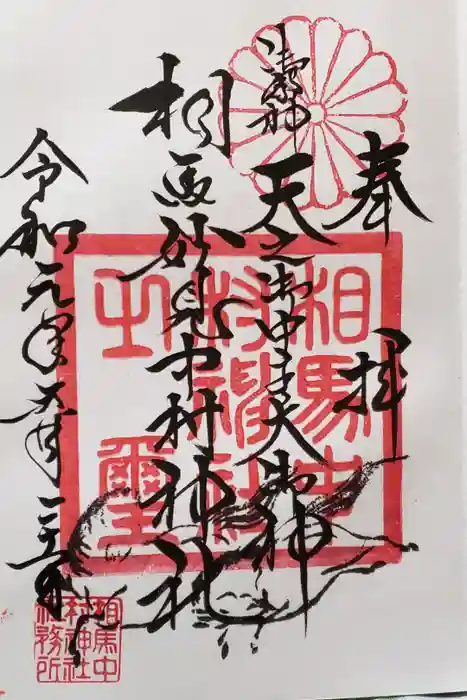 奉拝
御祭神
天之御中主大御神
相馬妙見中村神社
令和元年六月二十二日
相馬中
村神社
之璽
相馬中
村神社
社務所